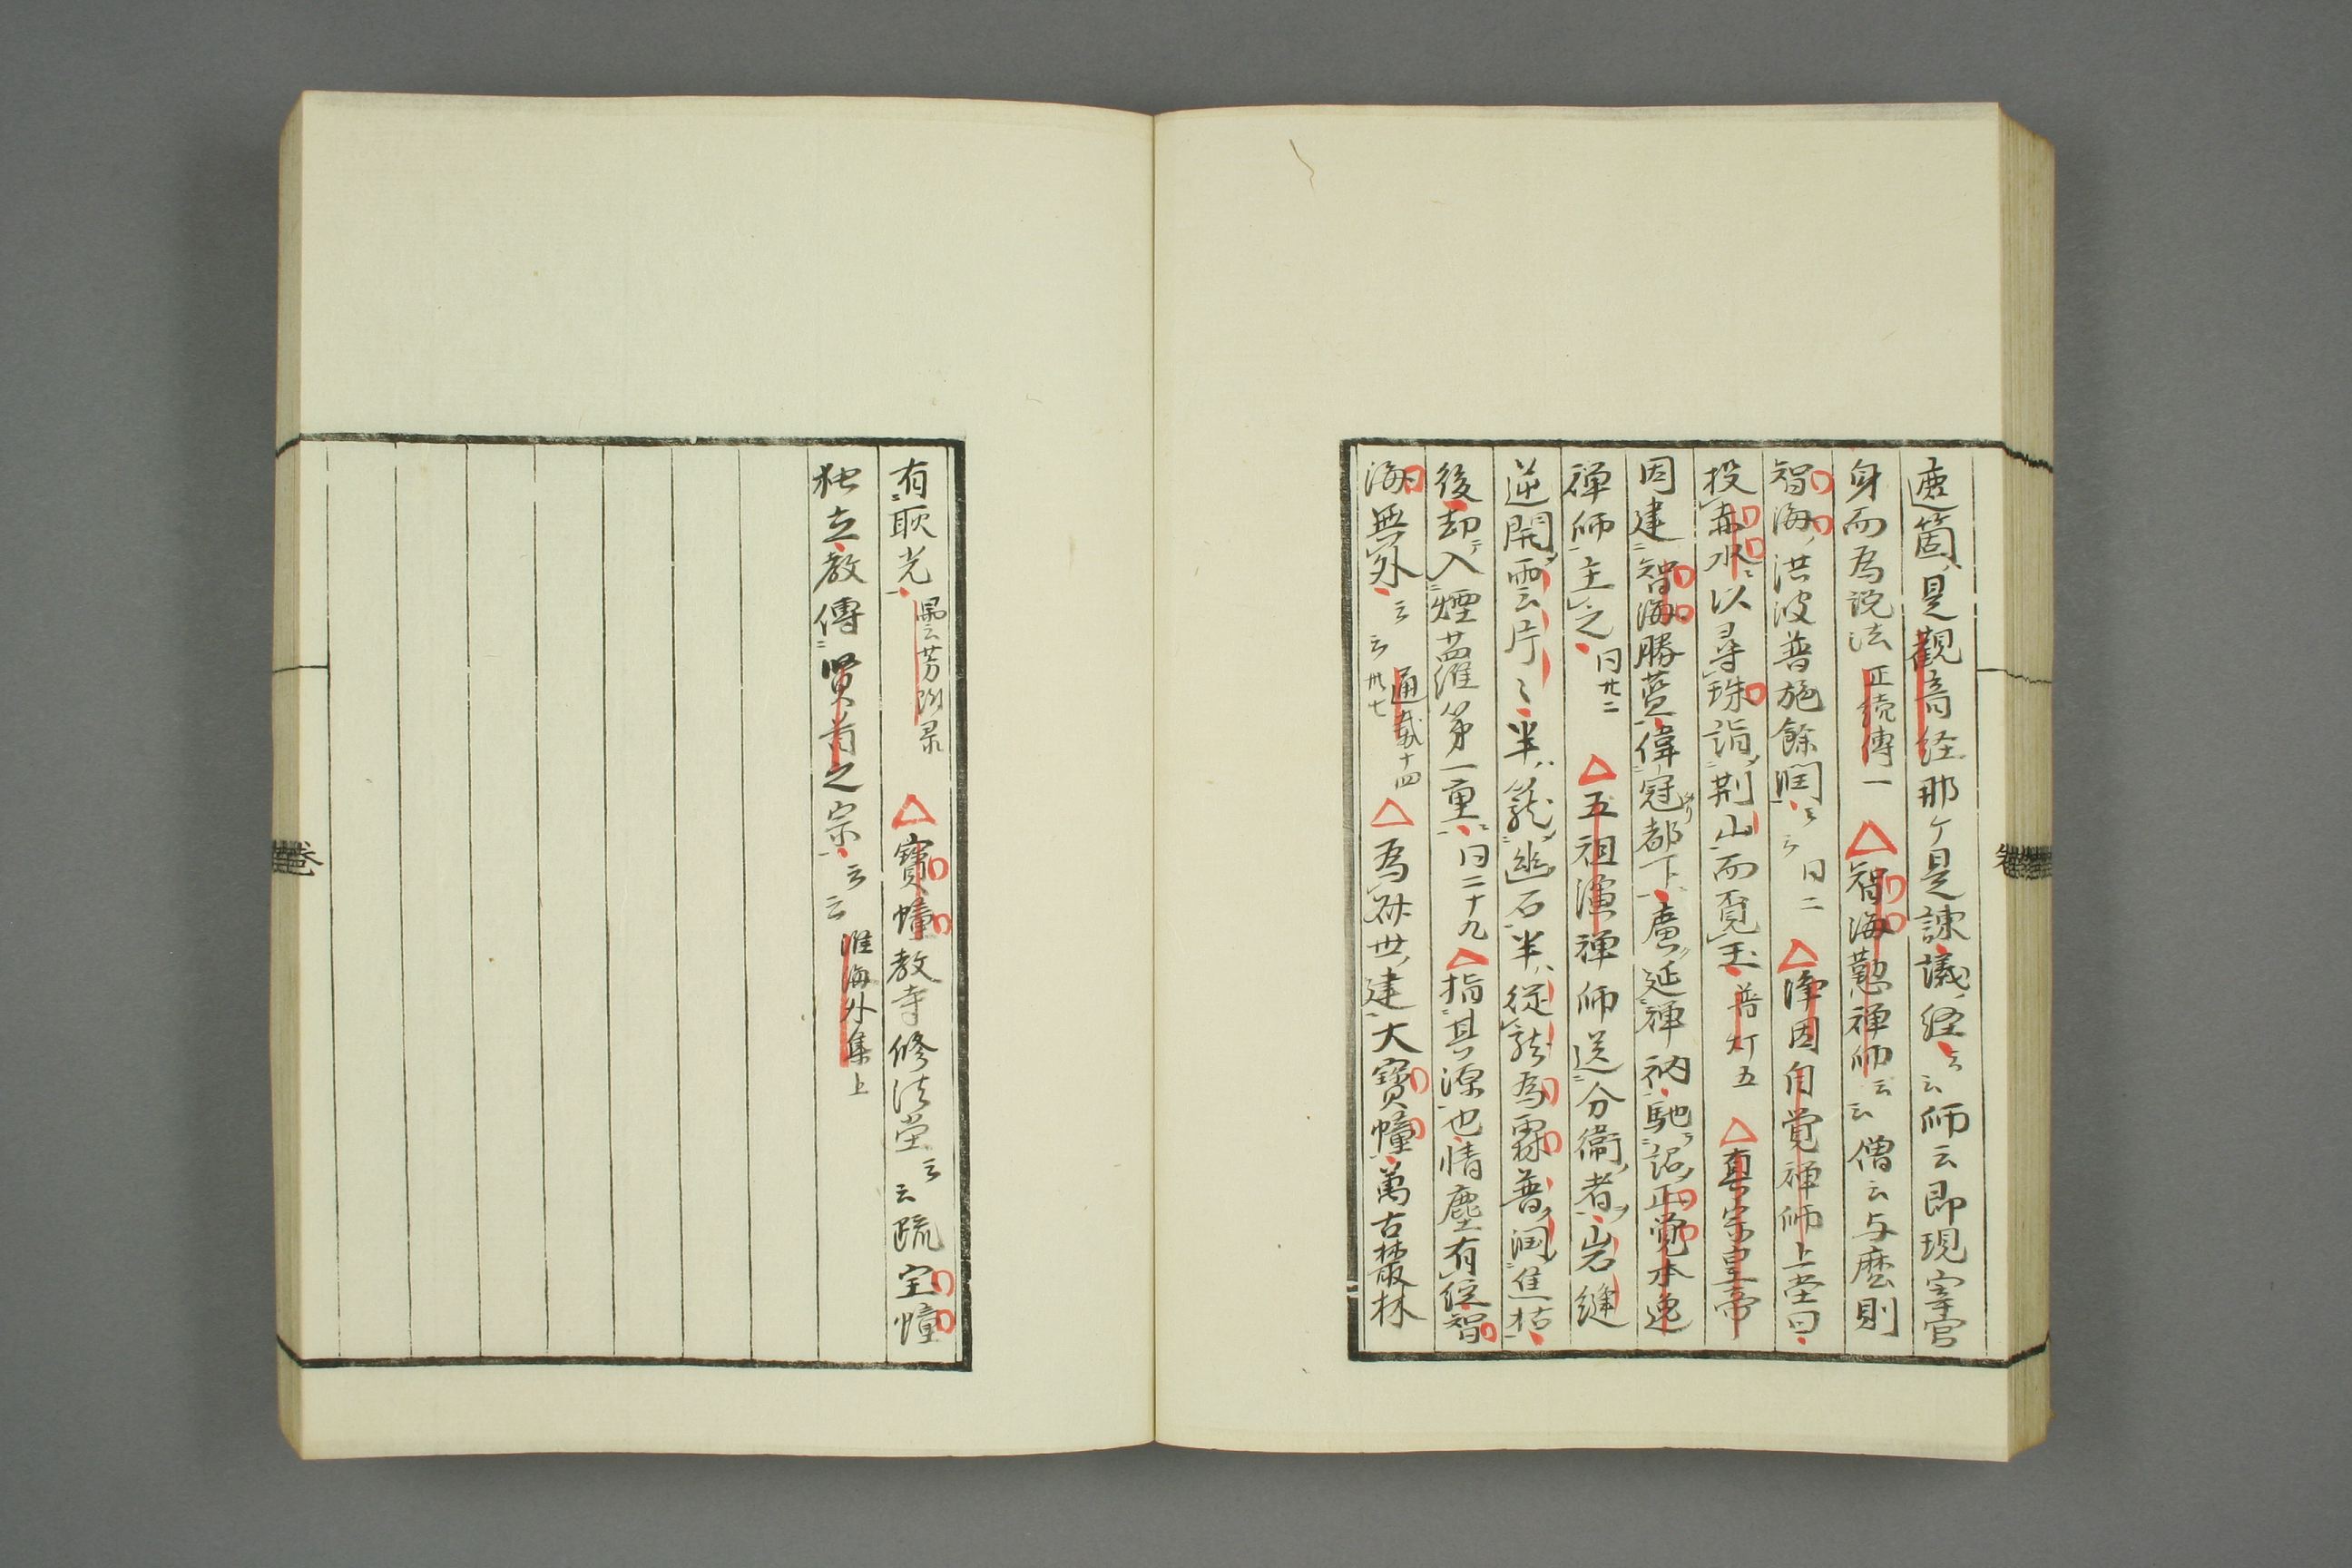 遮箇是觀音経那ケ是諫議経云云師云即現宰官
身而為説法 正続傳一 △智海懃禅師云云僧云与麼則
智海洪波普施餘潤云云 同二 △淨因自覚禅師上堂曰
投赤水以尋珠詣荆山而覓玉 普灯五 △真宗皇帝
因建智海勝藍偉冠都下廣延禅衲馳詔正覚本逸
禅師主之 同廿二 △五祖演禅師送分衞者山岩縫
迸開雲片〻半籠幽石半従龍為霖普潤焦枯
後却入煙蘿第一重 同二十九 △指其源也情塵有
海無外云云 通載十四 卅七 △為併世建大寶幢萬古叢林
有耿光 △寶幢教寺修法堂云云疏宝幢
独立教傳賢首之宗云云 淮海外集上
巻